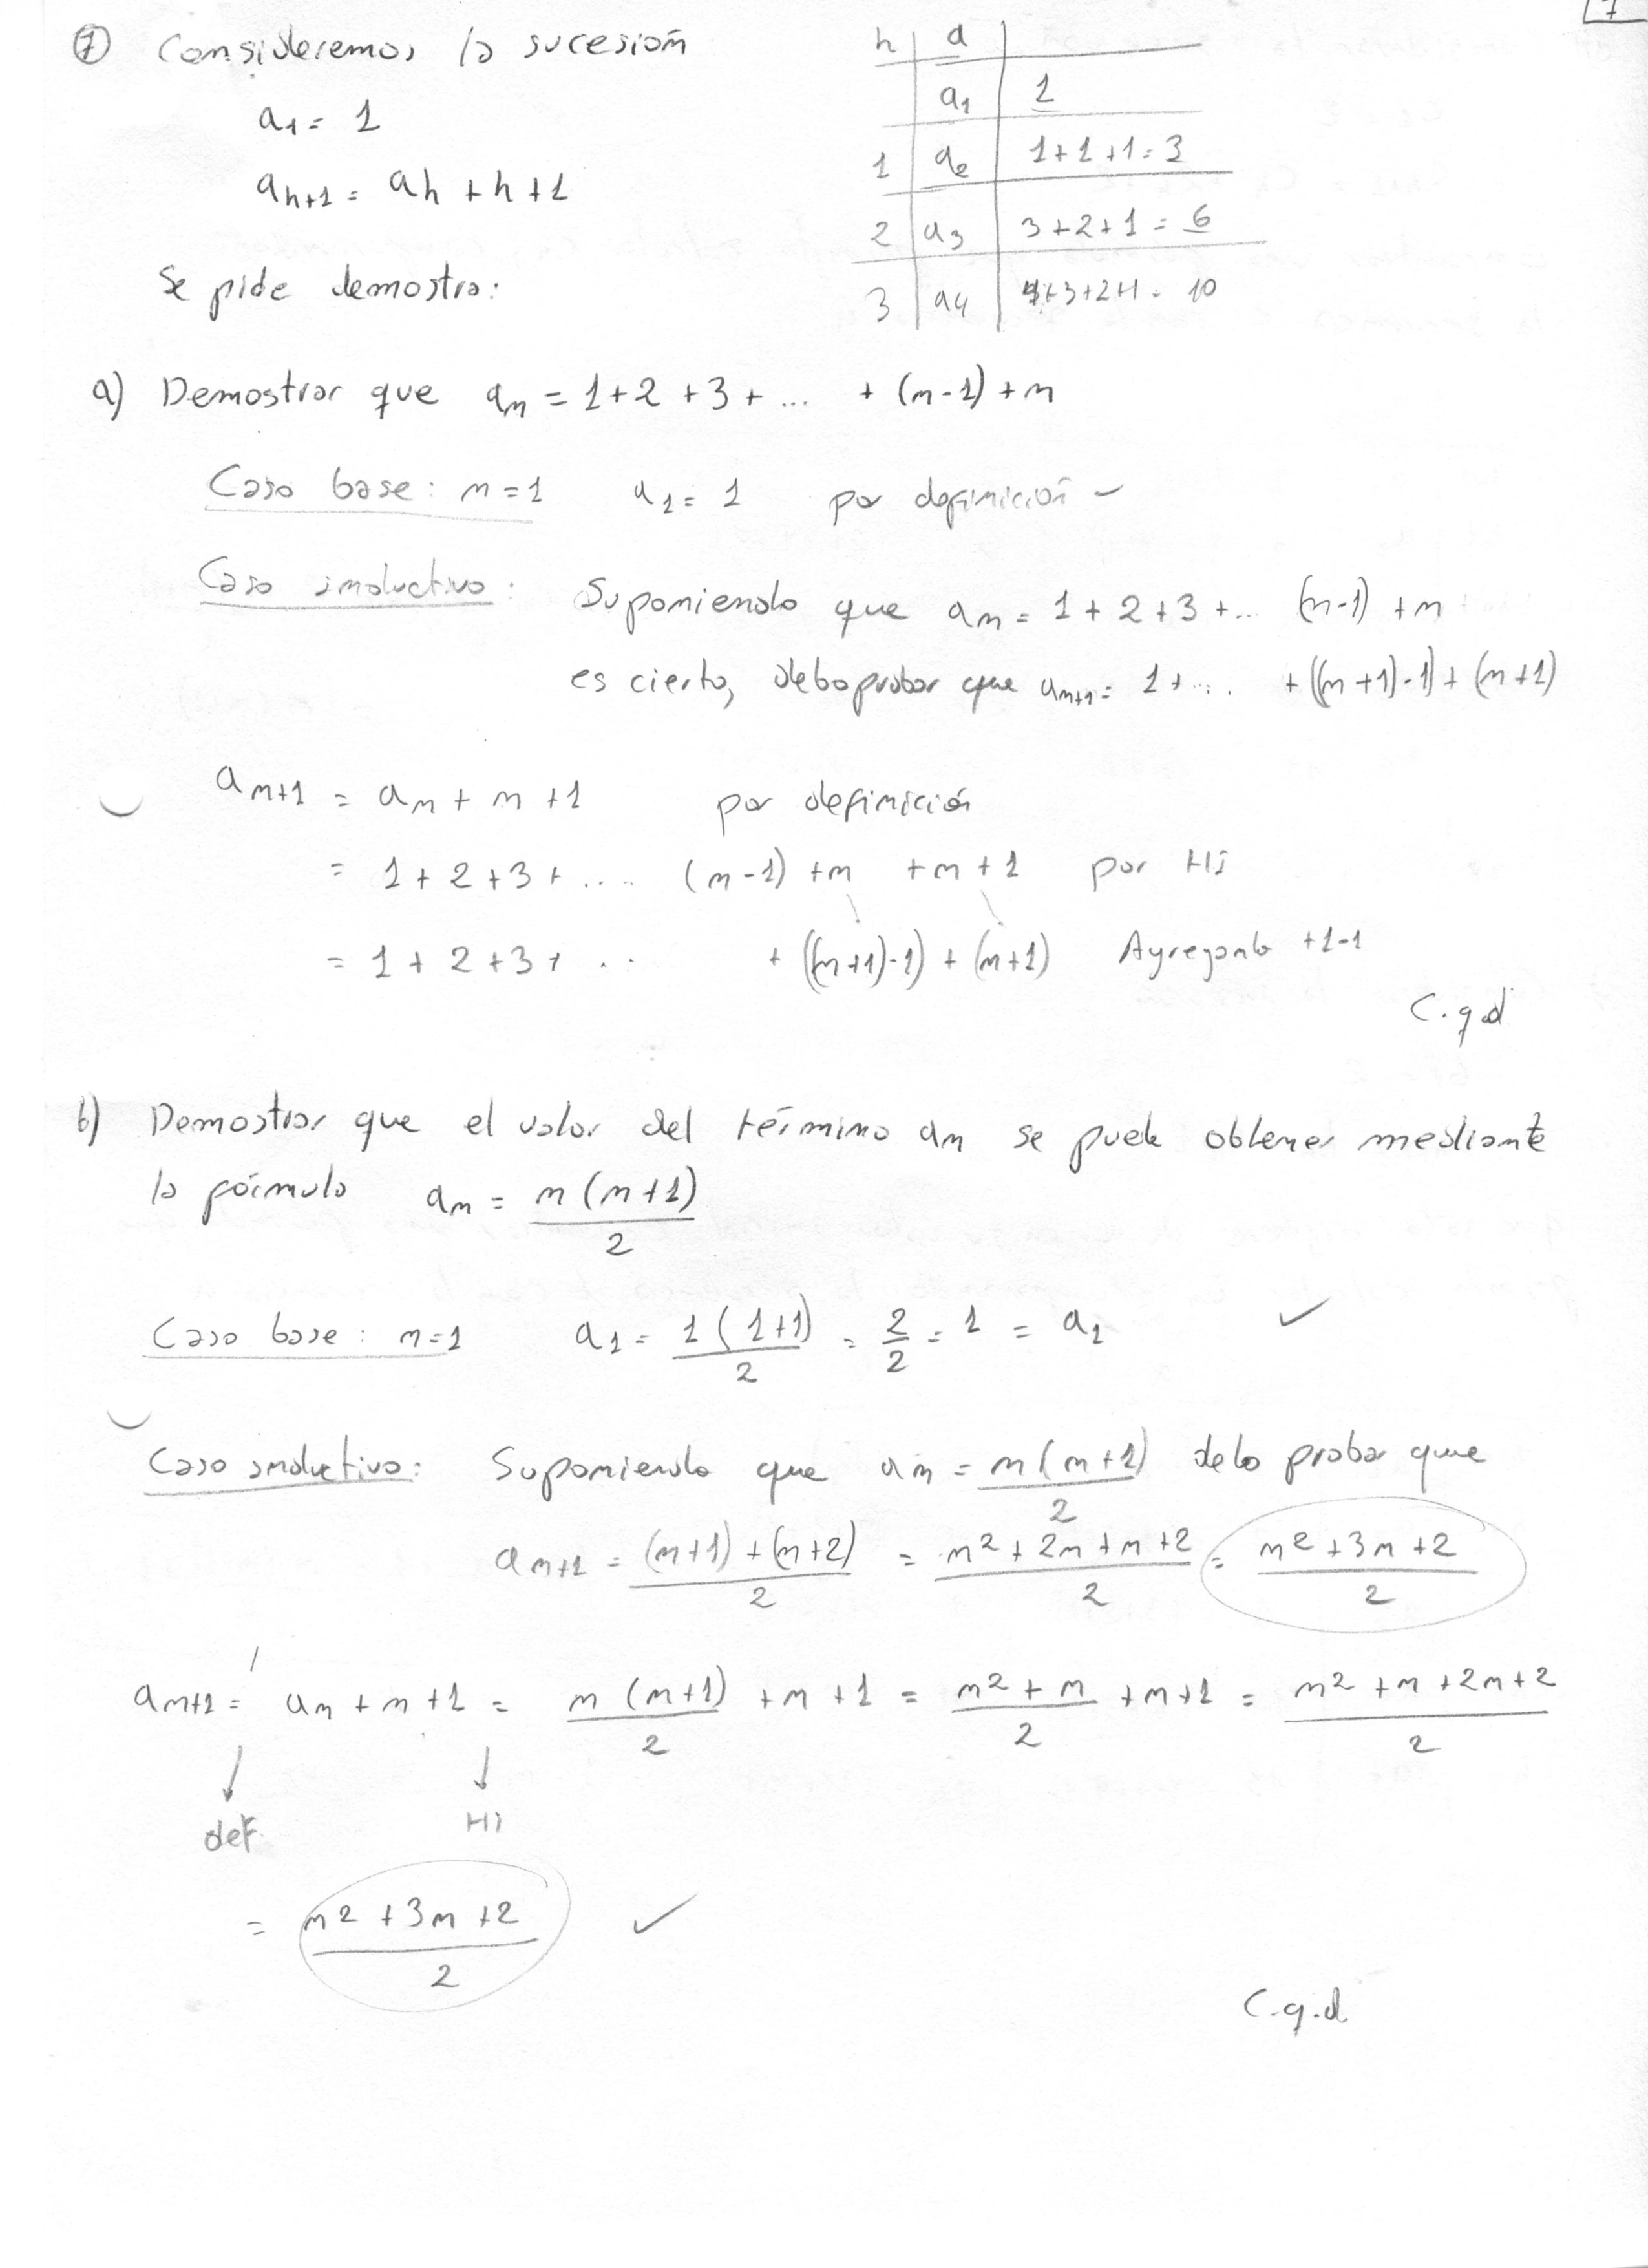 7
① Consideremos la sucesión
a1 = 1
an+1 = an + n + 1
Se pide demostra:
n a
a1 1
1 a2 1+1+1=3
2 a3 3+2+1=6
3 a4 4+3+2+1=10
a) Demostrar que an = 1+2+3+... + (n-1)+n
Caso base: n=1 a1=1 por definición
Caso inductivo: Suponiendo que an = 1+2+3+... (n-1)+n
es cierto, debo probar que an+1 = 1+... + ((n+1)-1)+(n+1)
an+1 = an + n + 1 por definición
= 1+2+3+.... (n-1)+n +n+1 por Hi
= 1+2+3+... + ((n+1)-1)+(n+1) Agregando +1-1
C.q.d
b) Demostrar que el valor del término an se puede obtener mediante
la fórmula an = n(n+1)/2
Caso base: n=1 a1 = 1(1+1)/2 = 2/2 = 1 = a1 ✓
Caso inductivo: Suponiendo que an = n(n+1)/2 debo probar que
an+1 = (n+1)+(n+2)/2 = n²+2n+n+2/2 = n²+3n+2/2
an+1 = an + n + 1 = n(n+1)/2 + n + 1 = n²+n/2 + n + 1 = n²+n+2n+2/2
def. Hi
= n²+3n+2/2 ✓
C.q.d